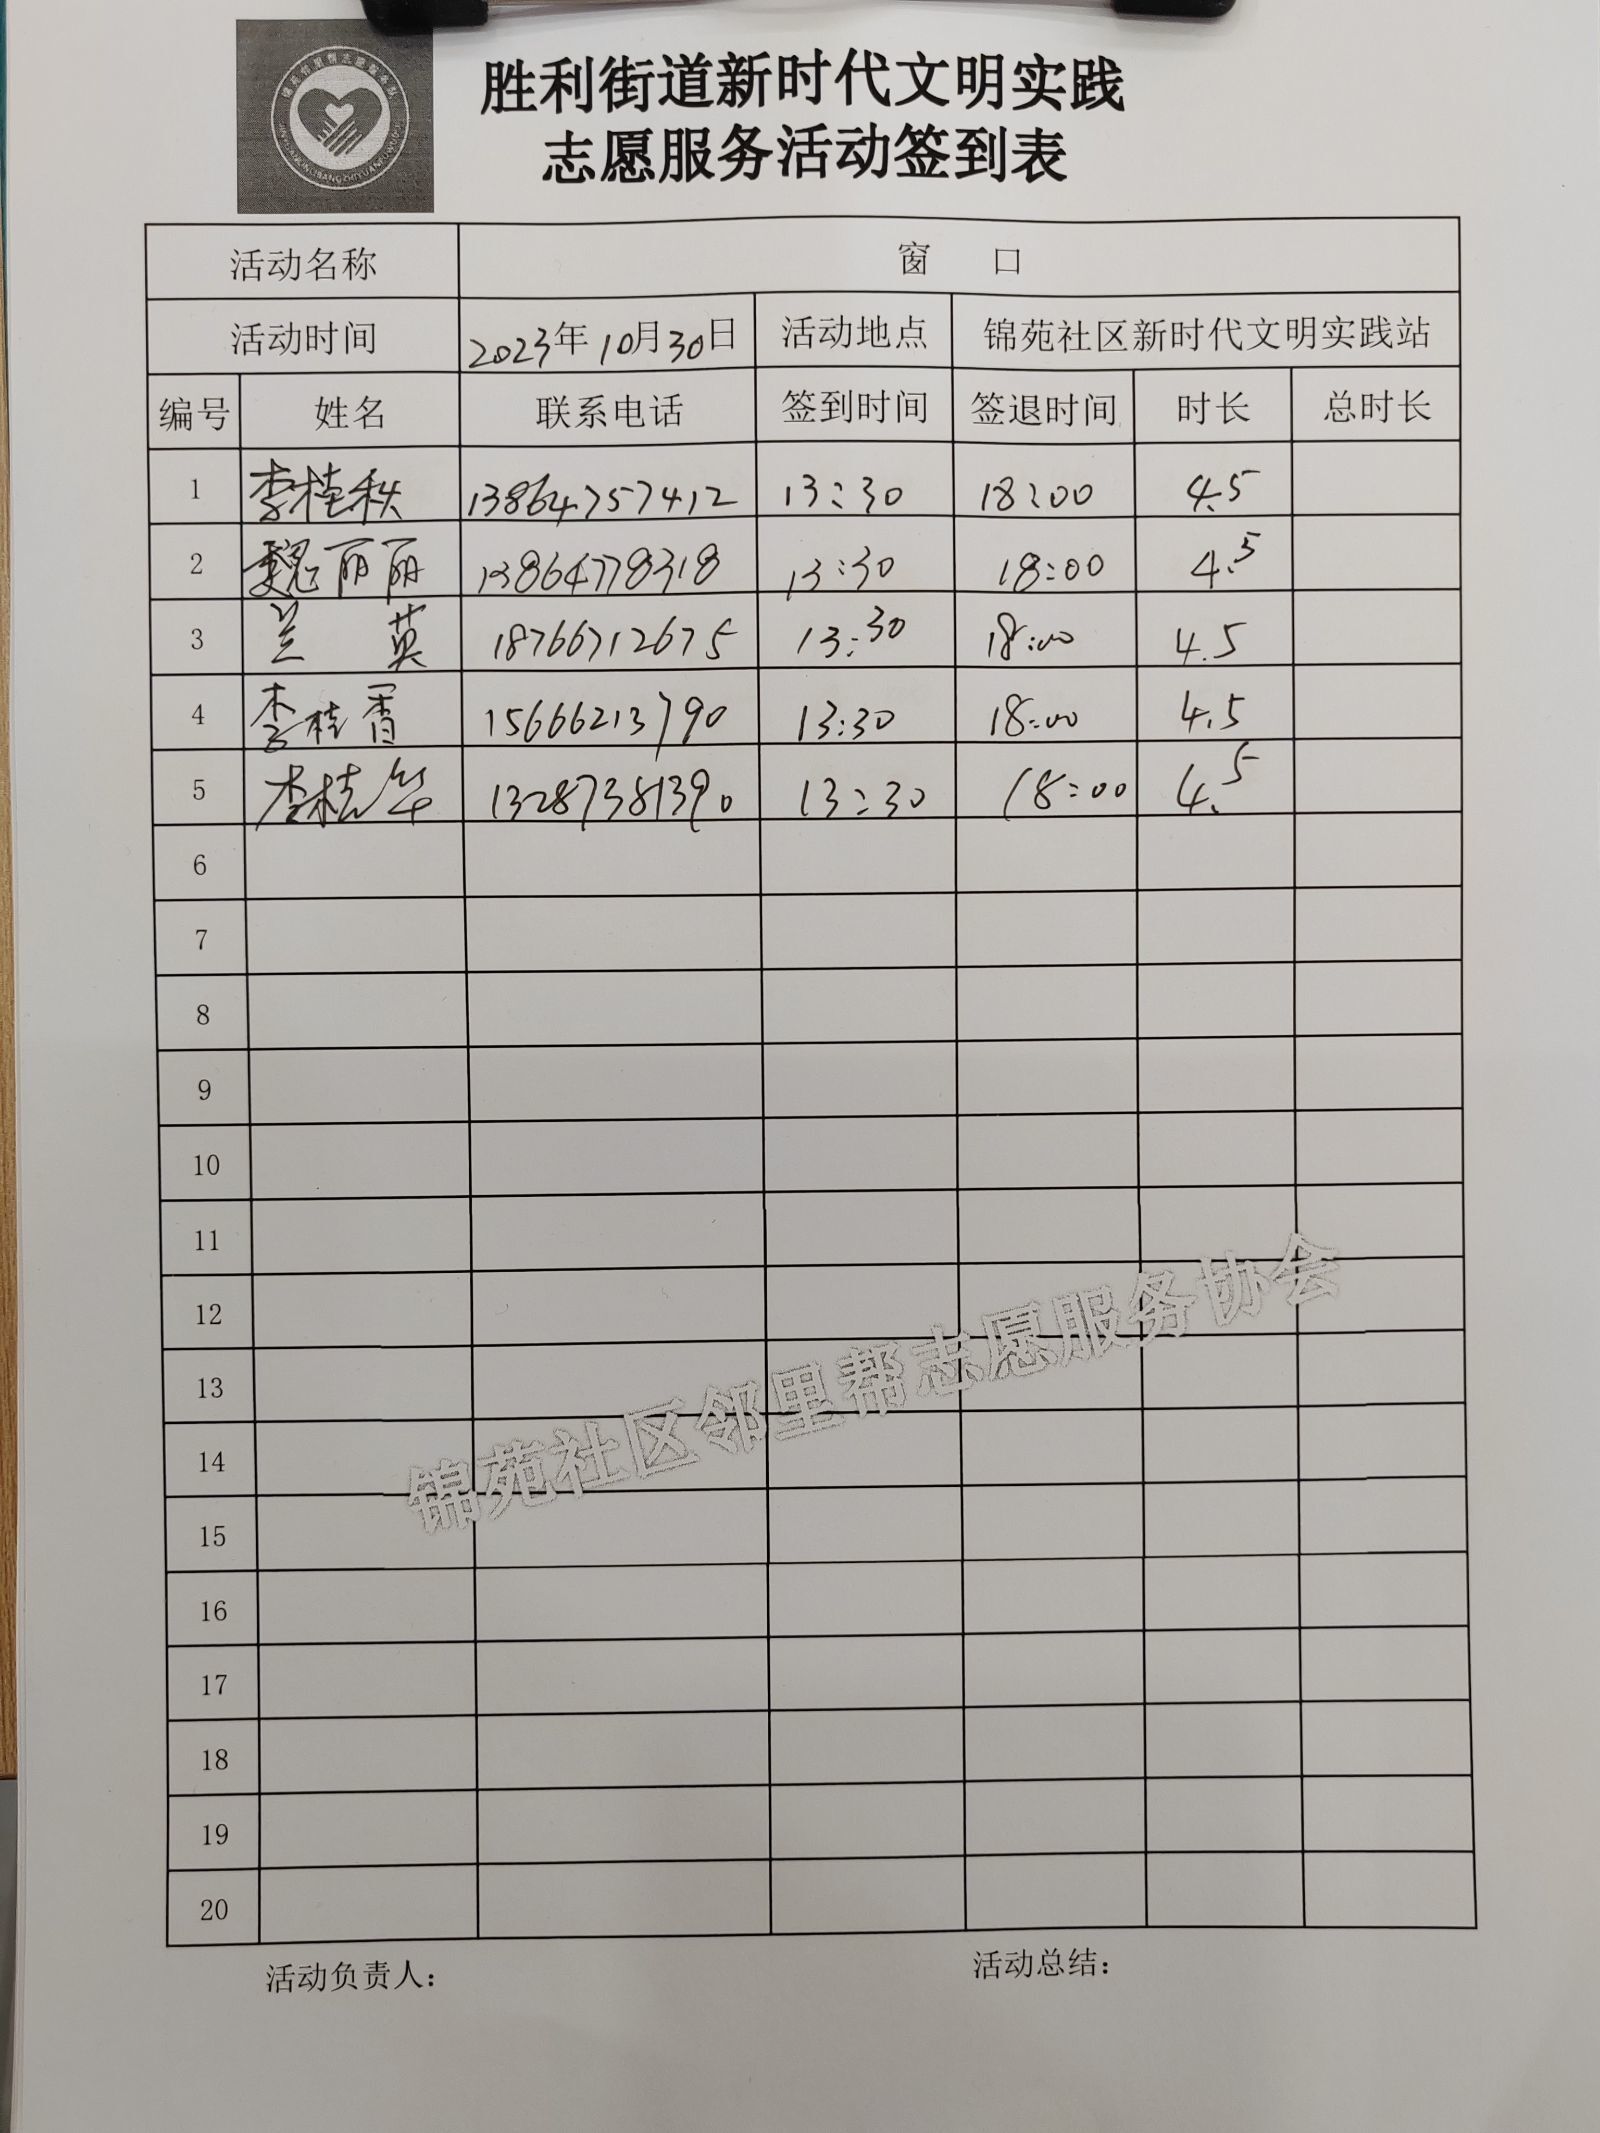 胜利街道新时代文明实践
志愿服务活动签到表
活动名称 窗 口
活动时间 2023年10月30日 活动地点 锦苑社区新时代文明实践站
编号 姓名 联系电话 签到时间 签退时间 时长 总时长
1 李桂秩 13864757412 13:30 18:00 4.5
2 魏丽丽 13864778318 13:30 18:00 4.5
3 兰 英 18766712675 13:30 18:00 4.5
4 李桂香 15666213790 13:30 18:00 4.5
5 李桂华 13287381390 13:30 18:00 4.5
6
7
8
9
10
11
12
13
14
15
16
17
18
19
20
锦苑社区邻里帮志愿服务协会
活动负责人： 活动总结：